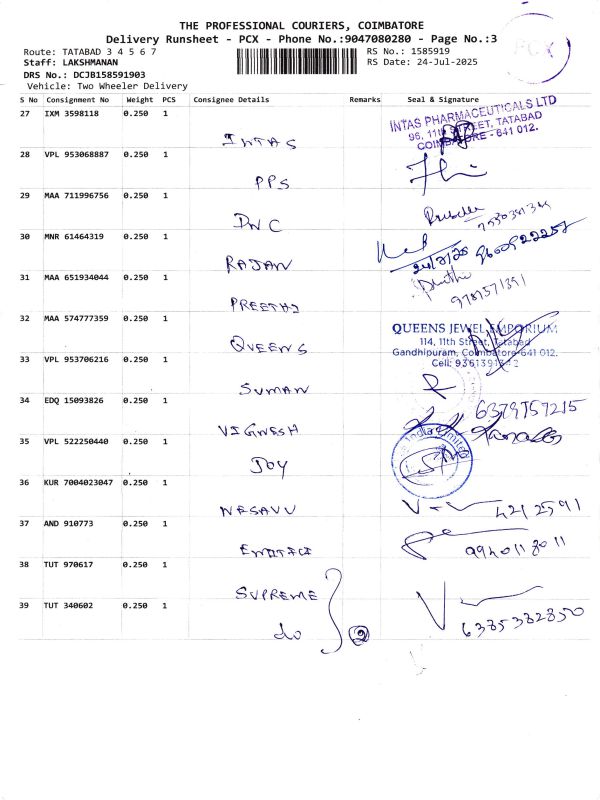 THE PROFESSIONAL COURIERS, COIMBATORE
Delivery Runsheet - PCX - Phone No.:9047080280 - Page No.:3
Route: TATABAD 3 4 5 6 7
RS No.: 1585919
Staff: LAKSHMANAN
RS Date: 24-Jul-2025
DRS No.: DCJB158591903
Vehicle: Two Wheeler Delivery
PCX
S No Consignment No Weight PCS Consignee Details Remarks Seal & Signature
27 IXM 3598118 0.250 1
INTAS
INTAS PHARMACEUTICALS LTD
96, 11th STREET, TATABAD
COIMBATORE - 641 012.
28 VPL 953068887 0.250 1
PPS
29 MAA 711996756 0.250 1
DNC
30 MNR 61464319 0.250 1
RAJAN
31 MAA 651934044 0.250 1
PREETHI
32 MAA 574777359 0.250 1
QUEENS
QUEENS JEWEL EMPORIUM
114, 11th Street, Tatabad
Gandhipuram, Coimbatore-641 012.
33 VPL 953706216 0.250 1
SUMAN
34 EDQ 15093826 0.250 1
VIGNESH
6379757215
35 VPL 522250440 0.250 1
JOY
India Limited
36 KUR 7004023047 0.250 1
NESAVU
421 2591
37 AND 910773 0.250 1
9940118011
38 TUT 970617 0.250 1
SUPREME
39 TUT 340602 0.250 1
do 2
6385382850